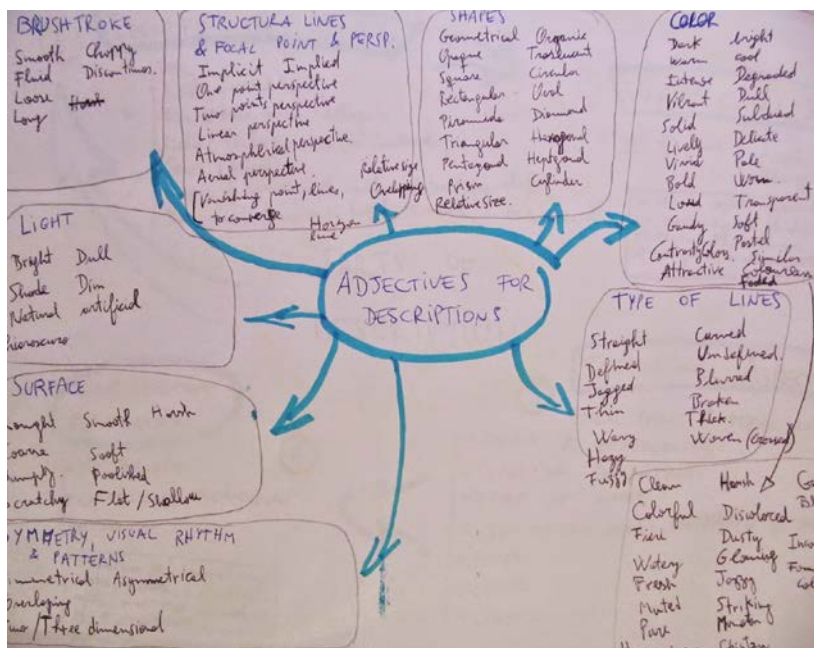 BRUSHTROKE
Smooth Choppy
Fluid Discontinuos.
Loose Harsh
Long
STRUCTURA LINES
& FOCAL POINT & PERSP.
Implicit Implied
One point perspective
Two points perspective
Linear perspective
Atmospherical perspective.
Aerial perspective.
Relative size
Overlapping
[Vanishing point, lines,
to converge
Horizon
line
SHAPES
Geometrical Organic
Opaque Translucent
Square Circular
Rectangular Oval
Piramide Diamond
Triangular Hexagonal
Pentagonal Heptgonal
Prism Cylinder
Relative size.
COLOR
Dark bright
Warm cool
Intense Degraded
Vibrant Dull
Solid Subdued
Lively Delicate
Vivid Pale
Bold Worn
Loud Transparent
Gaudy Soft
Pastel
Similar
Attractive Colourless
Faded
LIGHT
Bright Dull
Shade Dim
Natural artificial
hiaroscuro
ADJECTIVES FOR
DESCRIPTIONS
TYPE OF LINES
Straight Curved
Defined Undefined.
Jagged Blurred
Thin Broken
Thick.
Wavy Woven (Crossed)
Hazy
Fuzzy
SURFACE
Smooth Harsh
oarse Sooft
Poolished
cratchy Flat / shallow
YMMETRY, VISUAL RHYTHM
& PATTERNS
mmetrical Asymmetrical
verlaping
/ Three dimensional
Clean Harsh
Colorful Discolored
Dusty
Watery Glowing
Fresh Jazzy
Muted Striking
Pure